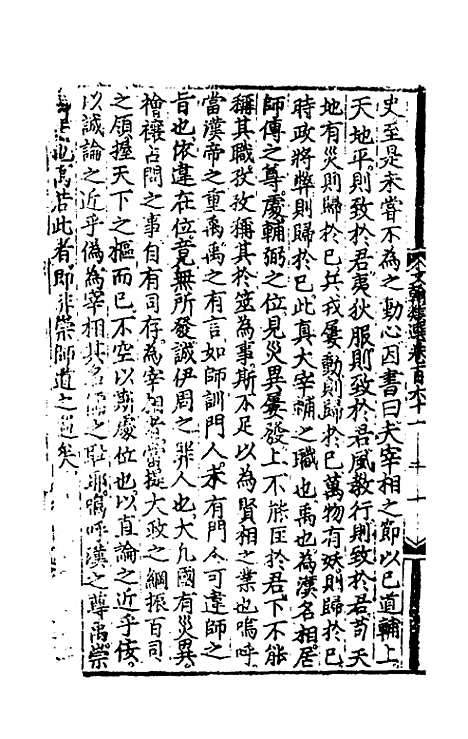 史至是未嘗不為之動心因書曰夫宰相之節以已道輔上
天地平則致於君夷狄服則致於君風敎行則致於君苟天
地有災則歸於已兵戎屢動則歸於已萬物有妖則歸於已
時政將弊則歸於已此真大宰輔之職也禹也為漢名相居
師傅之尊處輔弼之位見災異屢發上不能匡於君下不能
稱其職孜孜稱其於筮為事斯不足以為賢相之業也嗚呼
當漢帝之重禹禹之有言如師訓門人未有門人可違師之
旨也依違在位竟無所發誠伊周之罪人也大凡國有災異
禬禳占問之事自有司存為宰相者當提大政之綱振百司
之領握天下之樞而已不空以斯處位也以直論之近乎佞
以誠論之近乎偽為宰相其名儒之恥耶嗚呼漢之尊禹崇
也禹若此者即非崇師道之矣
文翰類選卷百六十一